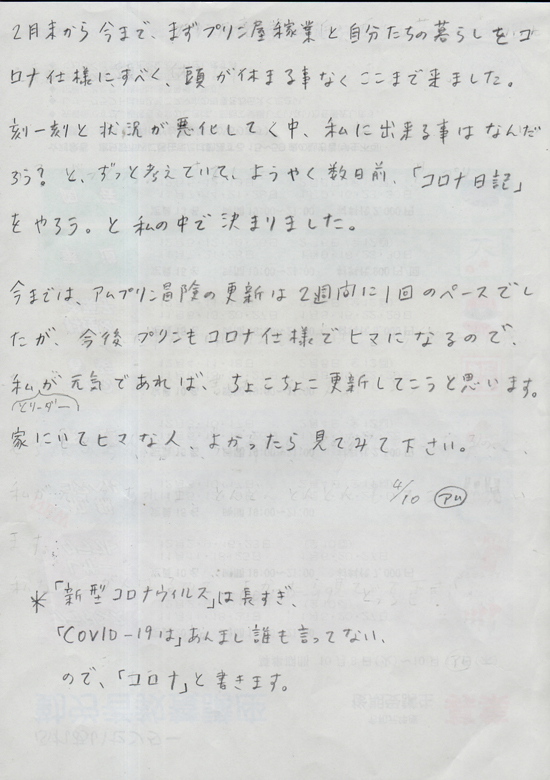 2月末から今まで、まずプリン屋稼業と自分たちの暮らしをコ
ロナ仕様にすべく、頭が休まる事なくここまで来ました。
刻一刻と状況が悪化してく中、私に出来る事はなんだ
ろう？と、ずっと考えていて、ようやく数日前、「コロナ日記」
をやろう。と私の中で決まりました。
今までは、アムプリン冒険の更新は2週間に1回のペースでし
たが、今後プリンもコロナ仕様でヒマになるので、
私が元気であれば、ちょこちょこ更新してこうと思います。
家にいてヒマな人、よかったら見てみて下さい。
4/10 アム
*「新型コロナウィルス」は長すぎ、
「COVID-19は」あんまし誰も言ってない、
ので、「コロナ」と書きます。